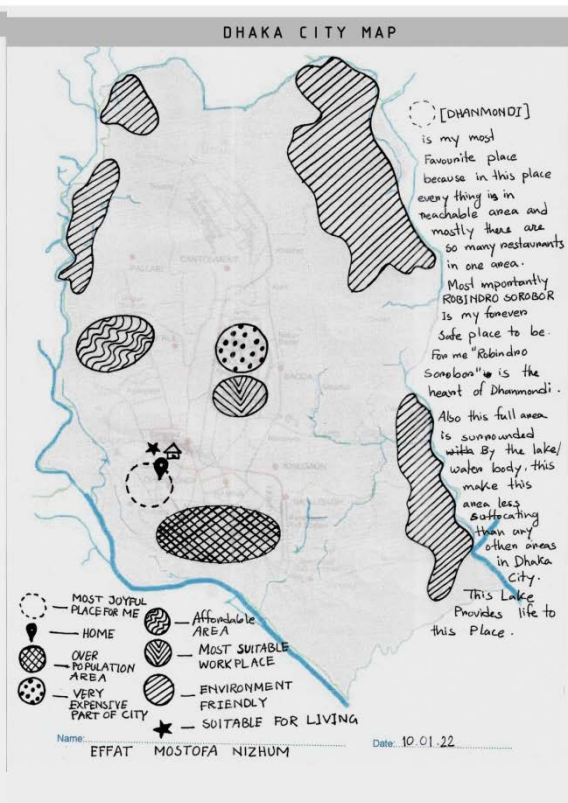 DHAKA CITY MAP
[DHANMONDI]
is my most
Favourite place
because in this place
every thing is in
reachable area and
mostly there are
so many restaurants
in one area.
Most importantly
ROBINDRO SOROBOR
Is my forever
Safe place to be.
For me "Robindro
Sorobor" is the
heart of Dhanmondi.
Also this full area
is surrounded
with By the lake/
water body. this
make this
area less
suffocating
than any
other areas
in Dhaka
City.
This Lake
Provides life to
this Place.
PALLABI
CANTONMENT
BADDA
MOST JOYFUL
PLACE FOR ME
HOME
OVER
POPULATION
AREA
VERY
EXPENSIVE
PART OF CITY
Affordable
AREA
MOST SUITABLE
WORKPLACE
ENVIRONMENT
FRIENDLY
SUITABLE FOR LIVING
Name:
EFFAT MOSTOFA NIZHUM
Date: 10.01.22